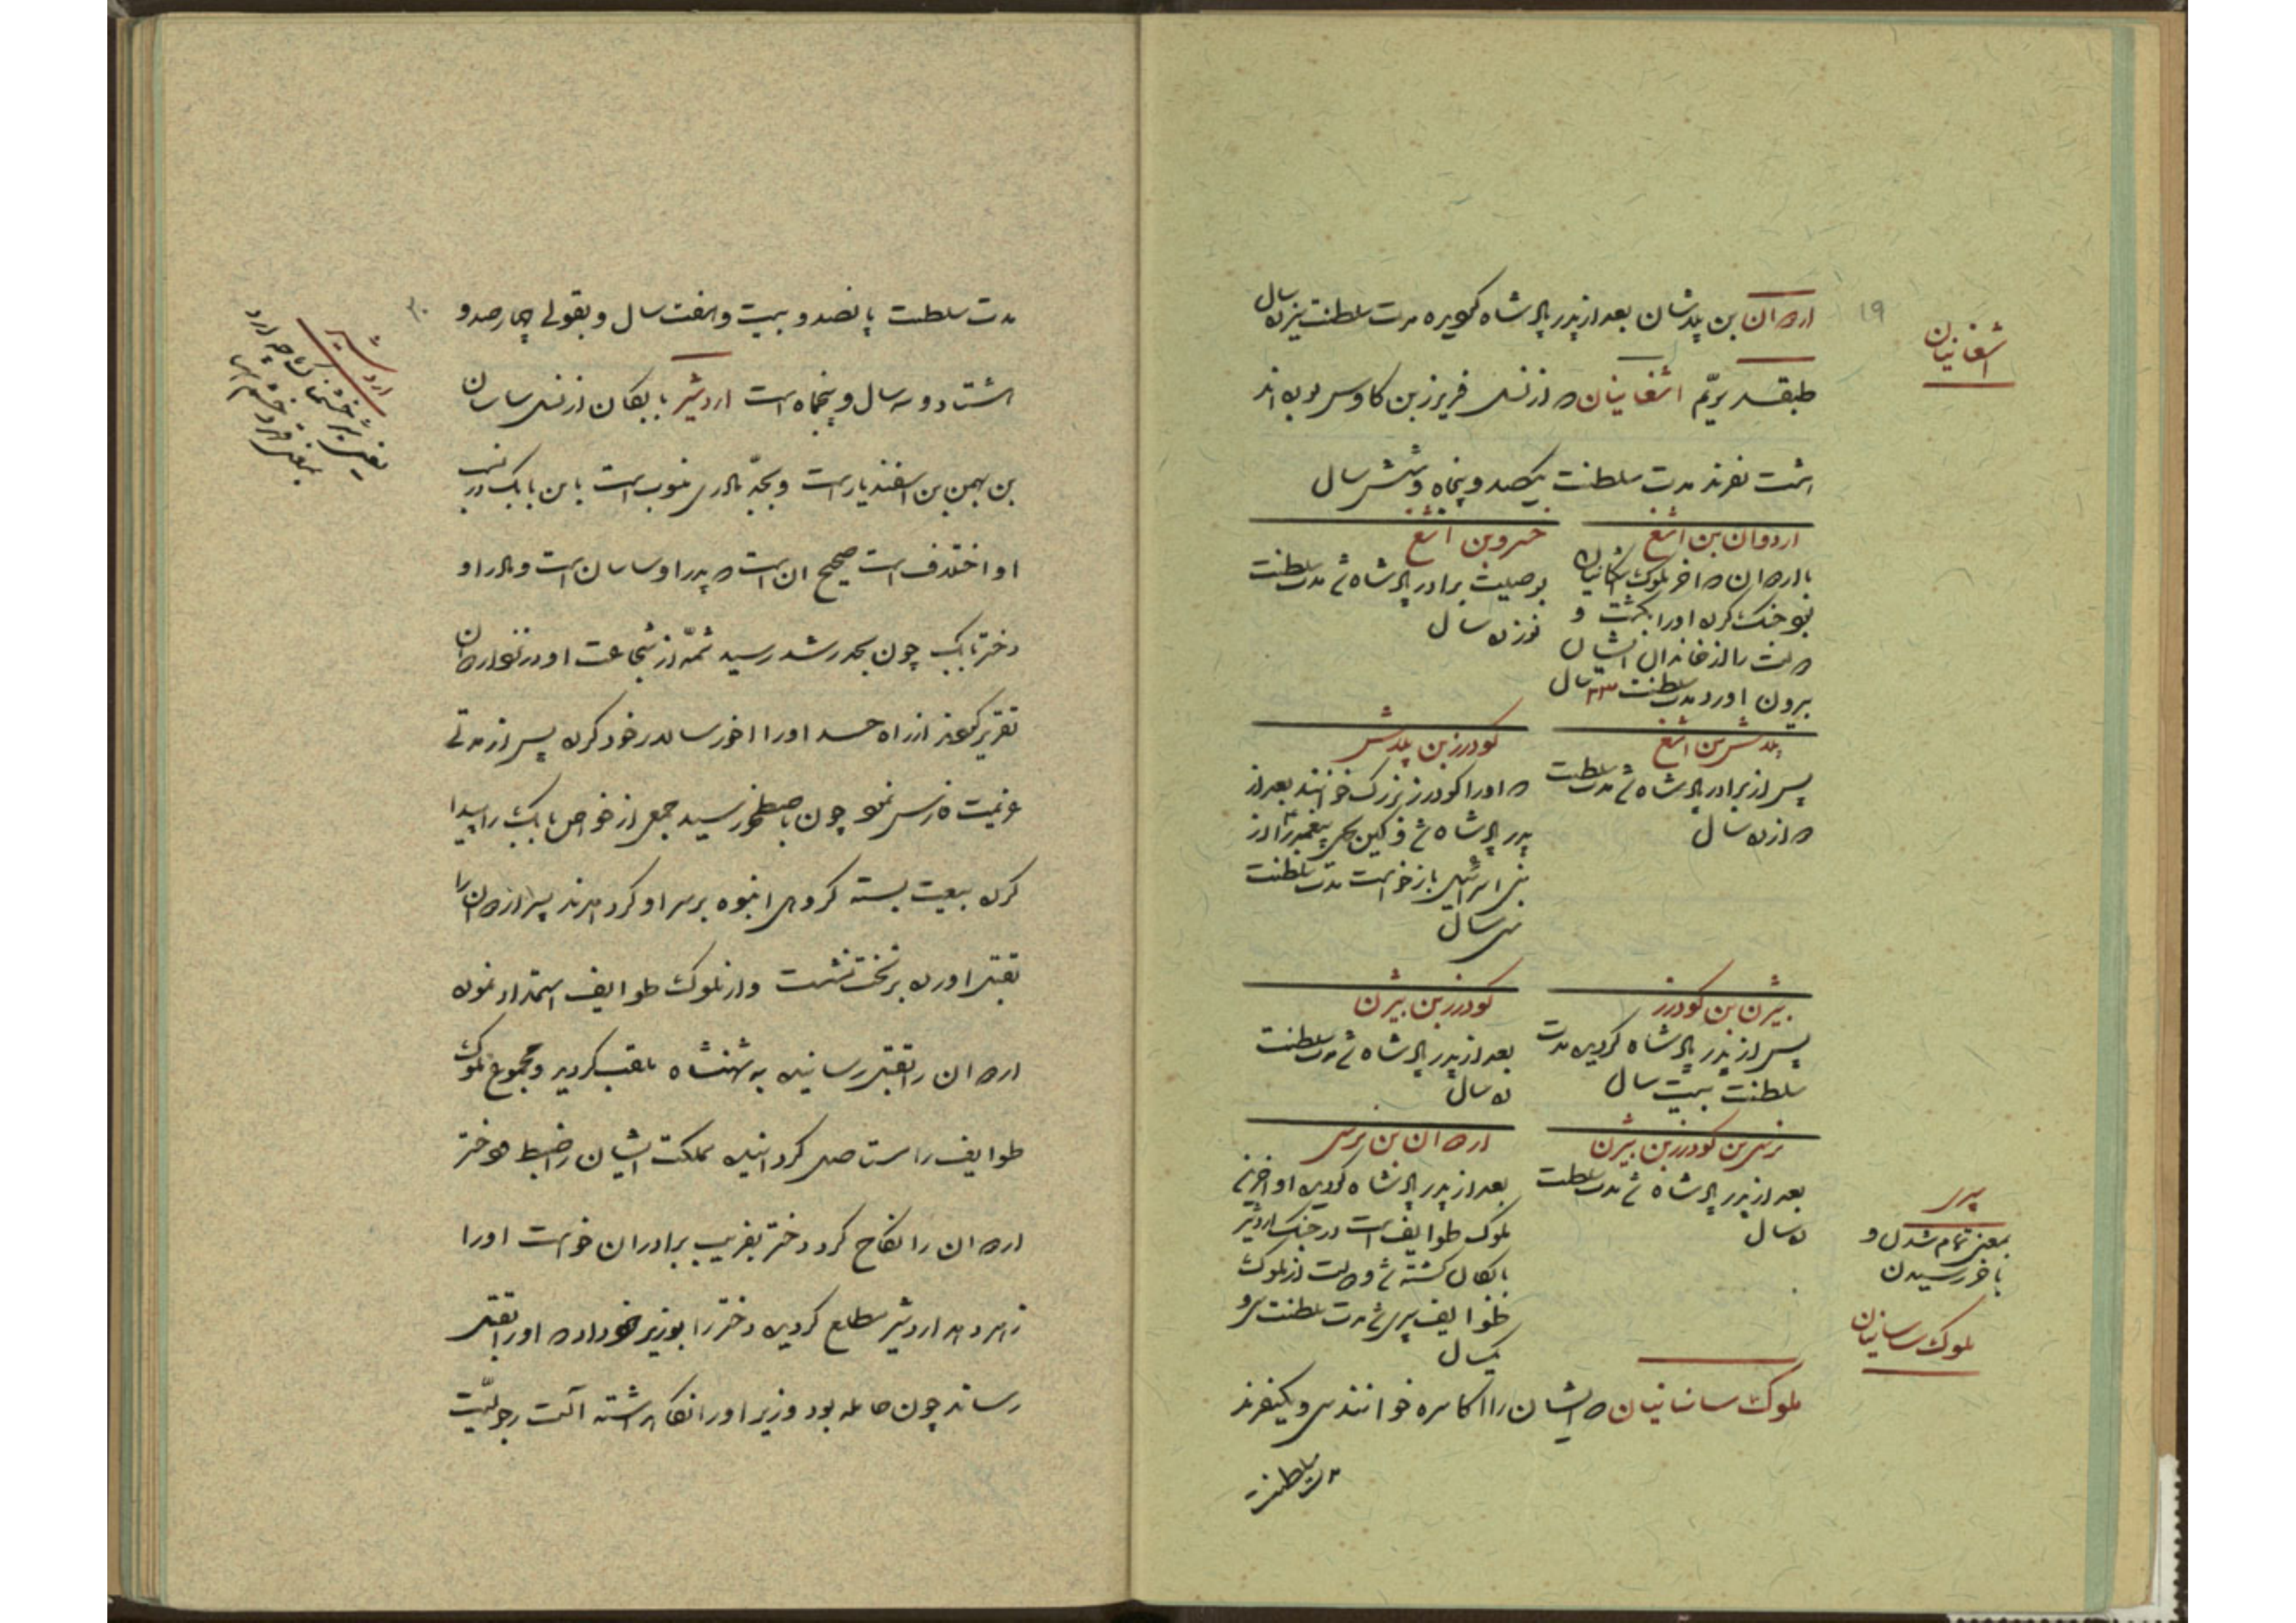 ۱۹
اشغانیان
اردوان بن پلاشان بعد از پدر پادشاه گردیده مدت سلطنت سیزده سال
طبقه سیّم اشغانیان که از نسل فریبرز بن کاوس بوده اند
هشت نفرند مدت سلطنت یکصد و پنجاه و شش سال
اردوان بن اشغ
با اردوان که آخر ملوک اشکانیان
بود جنک کرده او را بکشت و
دولت را از خاندان ایشان
بیرون آورد مدت سلطنت ۲۳ سال
خسرو بن اشغ
بوصیت برادر پادشاه شد مدت سلطنت
نوزده سال
پلاش بن اشغ
پس از برادر پادشاه شد مدت سلطنت
دوازده سال
کودرز بن پلاش
که او را کودرز بزرک خوانند بعد از
پدر پادشاه شد و کین یحیی پیغمبر را از
بنی اسرائیل بازخواست مدت سلطنت
سی سال
بیژن بن کودرز
پس از پدر پادشاه کردید مدت
سلطنت بیست سال
کودرز بن بیژن
بعد از پدر پادشاه شد مدت سلطنت
ده سال
نرسی بن کودرز بن بیژن
بعد از پدر پادشاه شد مدت سلطنت
ده سال
اردوان بن نرسی
بعد از پدر پادشاه کردید او آخرین
ملوک طوایف است در جنک اردشیر
بابکان کشته شد و دولت از ملوک
طوایف سپری شد مدت سلطنت سی و
یکسال
سپری
بمعنی تمام شدن و
بآخر رسیدن
ملوک ساسانیان
ملوک ساسانیان که ایشان را اکاسره خوانند سی و یکنفرند
مدت سلطنت
۲۰
مدت سلطنت پانصد و بیست و هفت سال و بقولی چهارصد و
هشتاد و سه سال و پنجماه است اردشیر بابکان از نسل ساسان
بن بهمن بن اسفندیار است و بجدّ مادری منسوب است باین بابک در نسب
او اختلاف است صحیح آن است که پدر او ساسان است و مادر او
دختر بابک چون بحد رشد رسید شمّه از شجاعت او در نزد اردوان
تقریر کردند از راه حسد او را آخور سالار خود کرد پس از مدتی
عزیمت فارس نمود چون باصطخر رسید جمعی از خواص بابک را پیدا
کرده بیعت بسته گروهی انبوه بر سر او گرد آمدند پسر اردوان را
بقتل آورده بر تخت نشست و از ملوک طوایف استمداد نموده
اردوان را بقتل رسانیده به شهنشاه ملقب کردید و مجموع ملوک
طوایف را مستاصل کردانیده مملکت ایشان را ضبط و دختر
اردوان را نکاح کرد دختر بفریب برادران خواست او را
زهر دهد اردشیر مطلع کردیده دختر را بوزیر خود داد که او را بقتل
رساند چون حامله بود وزیر او را نکاه داشته آلت رجولیّت
اردشیر
یعنی شیر خشمناک چه ارد
بمعنی قهر و خشم است